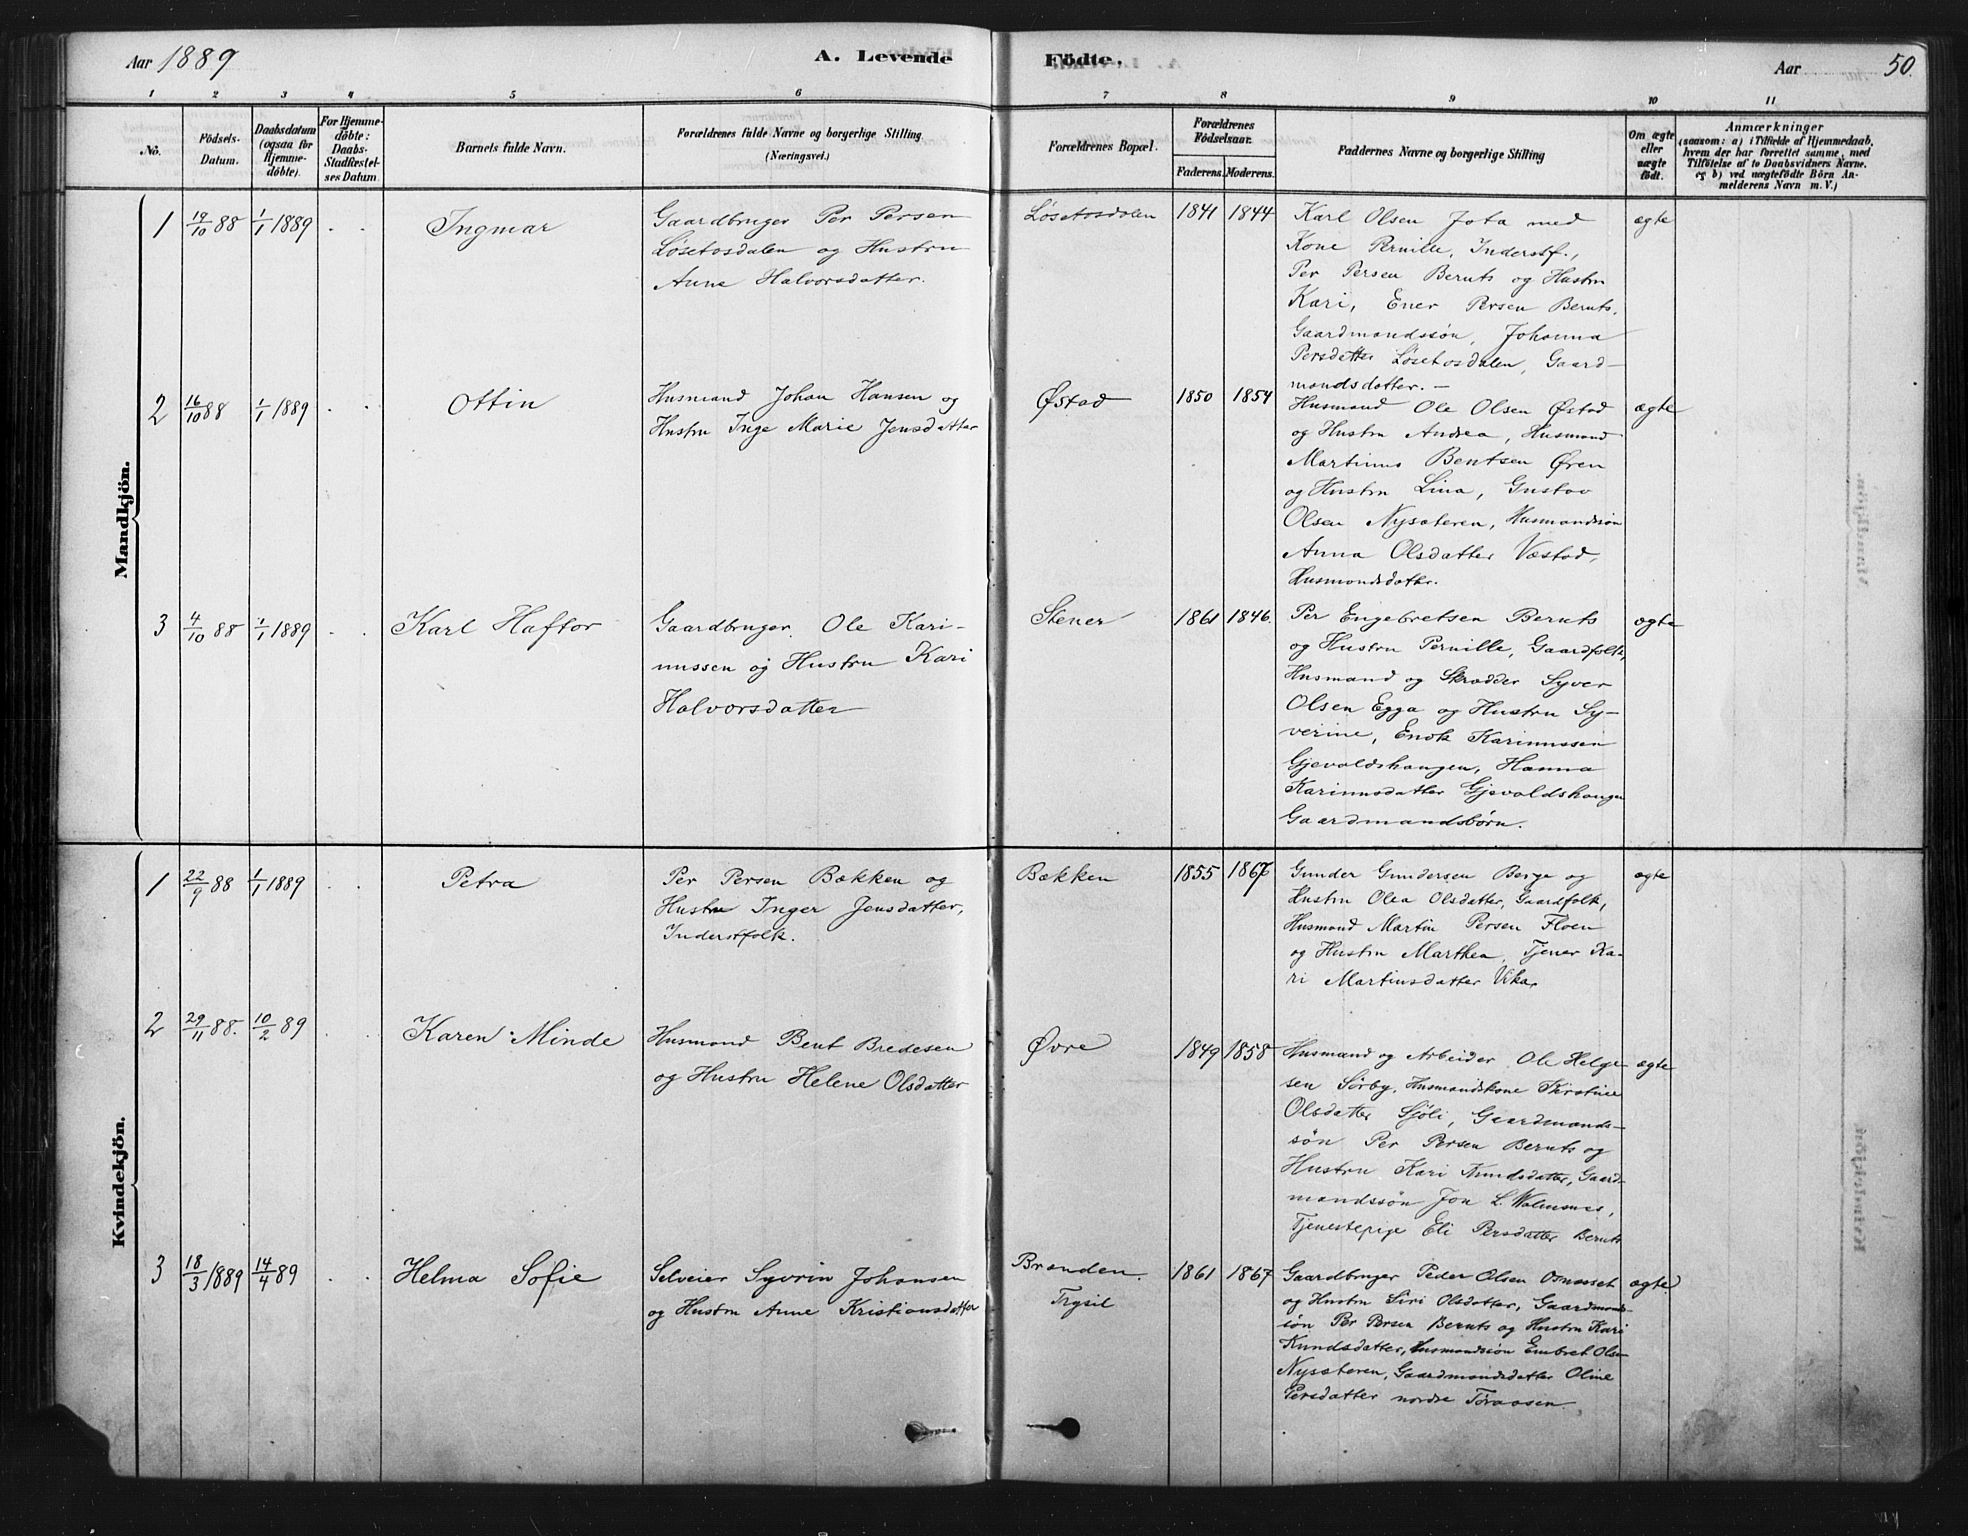 Aar 1889
A. Levende
Födte.
Aar
50.
1 2 3 4 5 6 7 8 9 10 11
No.
Födsels-
Datum.
Daabsdatum
(ogsaa for
Hjemme-
döbte).
For Hjemme-
döbte:
Daabs-
Stadfæstel-
ses Datum.
Barnets fulde Navn.
Forældrenes fulde Navne og borgerlige Stilling
(Næringsvei.)
Forældrenes Bopæl.
Forældrenes
Födselsaar.
Faderens. Moderens.
Faddernes Navne og borgerlige Stilling
Om ægte
eller
uægte
födt.
Anmærkninger
(saasom: a) i Tilfælde af Hjemmedaab,
hvem der har forrettet samme, med
Tilföielse af to Daabsvidners Navne.
og b) ved uægtefödte Börn An-
melderens Navn m. V.)
Mandkjön.
1 19/10 88 1/1 1889 Ingmar
Gaardbruger Per Persen
Løsetosdalen og Hustru
Anne Halvorsdatter.
Løsetosdalen 1841 1844
Karl Olsen Jota med
Kone Pernille, Inderstf.,
Per Persen Beruts og Hustru
Kari, Ener Persen Beruts,
Gaardmandssøn, Johanna
Persdatter Løsetosdalen, Gaard-
mandsdatter. –
ægte
2 16/10 88 1/1 1889 Ottin
Husmand Johan Hansen og
Hustru Inge Marie Jensdatter
Østad 1850 1854
Husmand Ole Olsen Østad
og Hustru Andrea, Husmand
Martinus Bentsen Øren
og Hustru Lina, Gustav
Olsen Nysæteren, Husmandssøn
Anna Olsdatter Væstad,
Husmandsdatter.
ægte
3 4/10 88 1/1 1889 Karl Haftor
Gaardbruger Ole Kari-
nussen og Hustru Kari
Halvorsdatter
Stener 1861 1846.
Per Engebretsen Beruts
og Hustru Pernille, Gaardfolk,
Husmand og Skrædder Syver
Olsen Egga og Hustru Sy-
verine, Enok Karinussen
Gjevaldshaugen, Hanna
Karinusdatter Gjevaldshaugen
Gaardmandsbørn.
ægte
Kvindekjön.
1 22/9 88 1/1 1889 Petra
Per Persen Bækken og
Hustru Inger Jensdatter,
Inderstfolk.
Bækken 1855 1867
Gunder Gundersen Berge og
Hustru Olea Olsdatter, Gaardfolk,
Husmand Martin Persen Floen
og Hustru Marthea, Tjener Ka-
ri Martinsdatter Vika,
ægte
2 29/11 88. 10/2 89 Karen Minde
Husmand Bent Bredesen
og Hustru Helene Olsdatter
Øvre 1849 1858
Husmand og Arbeider Ole Helge
sen Sörby, Husmandskone Kirstine
Olsdatter Sjöli, Gaardmands-
søn Per Persen Beruts og
Hustru Kari Knudsdatter, Gaard-
mandssøn Jon L.
Tjenestepige Eli Persdatter Beruts
ægte
3 18/3 1889 14/4 89 Helma Sofie
Selveier Syvrin Johansen
og Hustru Anne Kristiansdatter
Branden.
Trysil
1861 1867
Gaardbruger Peder Olsen Osneset
og Hustru Siri Olsdatter, Gaardmands-
søn Per Persen Beruts og Hustru Kari
Knudsdatter, Husmandssøn Embret Olsen
Nysæteren, Gaardmandsdatter Oline
Persdatter nordre Tøraasen.
ægte